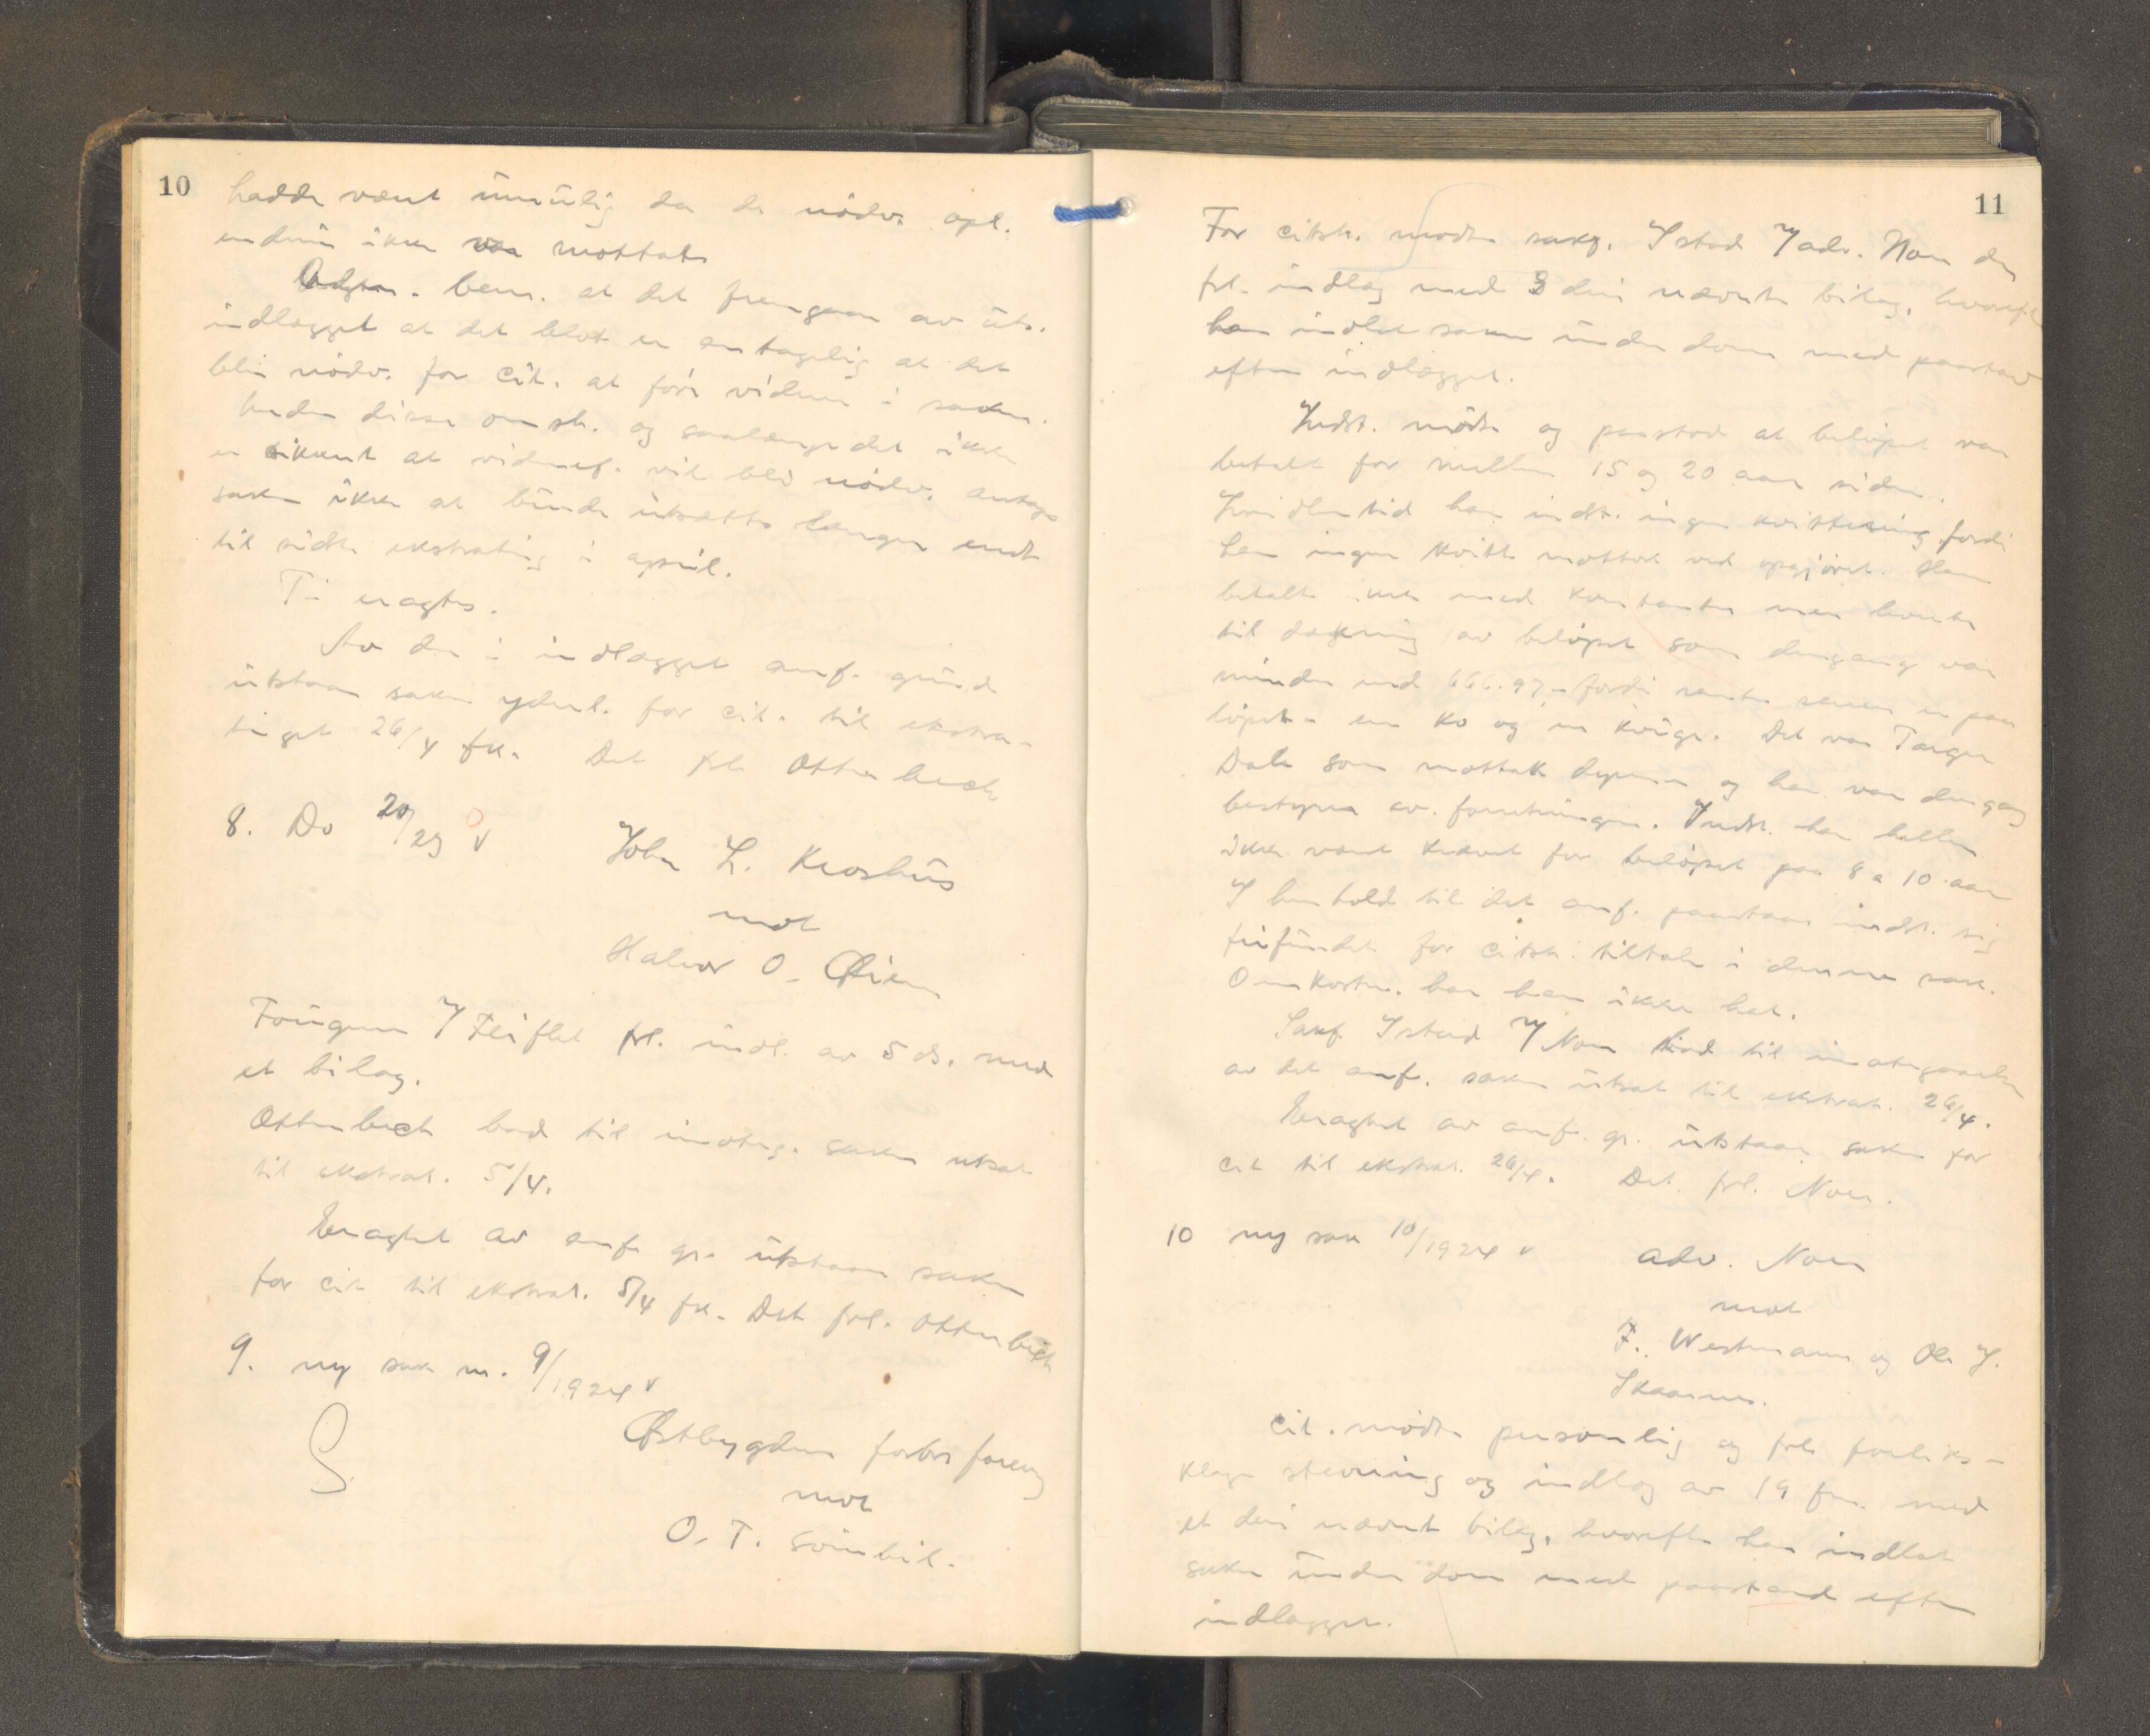 10
hadde været umulig da de nødv. opl.
endnu ikke var mottat.
bem. at det fremgaar av uts.
indlægget at det blot er antagelig at det
blir nødv. for cit. at føre vidner i saken.
Under disse omst. og saalænge det ikke
er sikkert at vidnef. vil bli nødv. antages
saken ikke at burde utsættes længer endt
til sidste ekstrating i april.
Ti eragtes.
Av den i indlægget anf. grund
utstaar saken yderl. for cit. til ekstra-
tinget 26/4 fk. Det frl. Otterbech
8. Do 20/23 v
John L. Kroshus
mot
Halvor O. Øien
Foúgner ved Fleiflet frl. indl. av 5 ds. med
et bilag.
Otterbech bad til imøteg. saken utsat
til ekstrat. 5/4.
Eragtet av anf. gr. utstaar saken
for cit til ekstrat. 5/4 fk. Det frl. Otterbech
9. ny sak nr. 9/1924 v
Østbygdens forbrforening
mot
O. T. Svinbil.
11
For citst. mødte sakf. Istad v/ adv. Noer der
frl. indlæg med 3 deri nævnte bilag, hvorefter
han indlot saken under dom med paastand
efter indlægget.
Indst. mødte og paastod at beløpet var
betalt for mellem 15 og 20 aar siden.
Imidlertid har indst. ingen kvittering fordi
han ingen kvitt mottok ved opgjøret. Han
betalte ikke med kontanter men leverte
til dækning av beløpet som dengang var
mindre end 666.97 - fordi renter senere er paa
løpet - en ko og en kvige. Det var Torger
Dale som mottok dyrene og han var dengang
bestyrer av forretningen. Indst. har heller
ikke været krævet for beløpet paa 8 a 10 aar
I henhold til det anf. paastaar indst. sig
frifundet for citst. tiltale i denne sak.
Omkostn. har han ikke hat.
Sakf. Istad v/ Noer bad til imøtegaaelse
av det anf. saken utsat til ekstrat. 26/4.
Eragtet av anf. gr. utstaar saken for
cit til ekstrat. 26/4. Det frl. Noer.
10 ny sak 10/1924 v
adv. Noer
mot
F. Westmann og Ole J.
Skaarnes.
Cit. mødte personlig og frl. forliks-
klage stevning og indlæg av 19 fm. med
et deri nævnt bilag, hvorefter han indlot
saken under dom med paastand efter
indlægget.